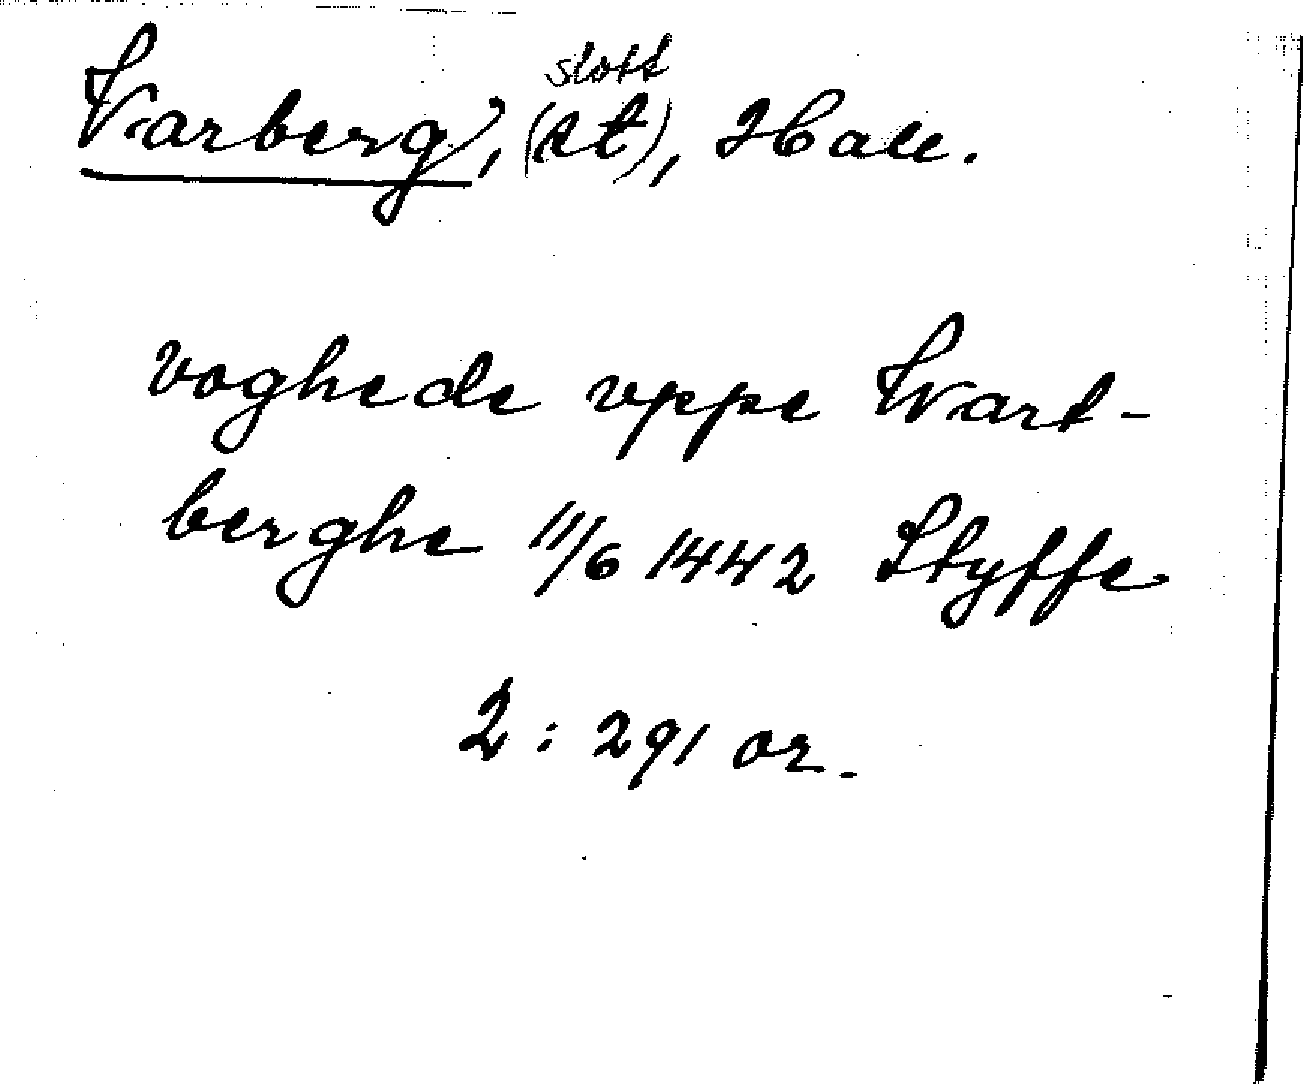 slott
Varberg, (st), Hall.
voghede vppe Wart-
berghe 11/6 1442 Styffe
2: 291 or.